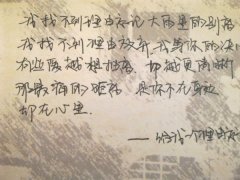 我找不到理由忘记大雨里的别扭
我找不到理由放弃我等你的决
有些爱越想抽离 却越更清晰
那最痛的距离 是你不在身边
却在心里
——给我一个理由忘